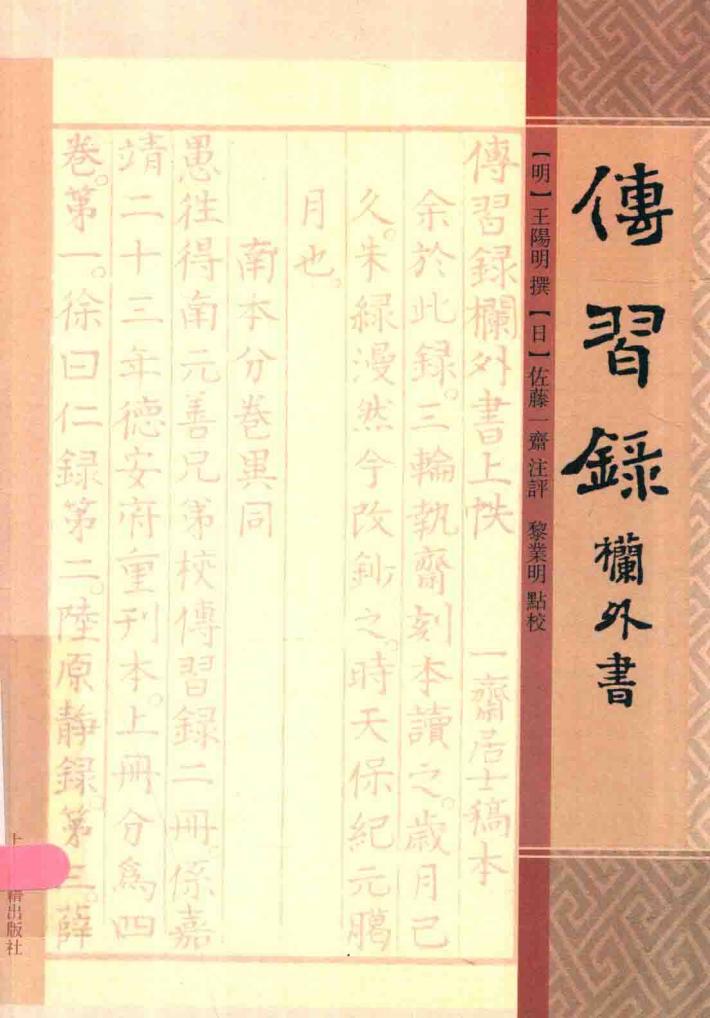 傳習錄
欄外書
【明】王陽明 撰 【日】佐藤一齋 注評 黎業明 點校
傳習録欄外書上帙 一齋居士稿本
余於此録。三輪執齋刻本讀之。歲月已
久。朱緑漫然今改鈔之。時天保紀元臈
月也。
南本分巻異同
愚往得南元善兄第校傳習録二冊。係嘉
靖二十三年德安府重刊本。上冊分爲四
巻。第一。徐曰仁録第二。陸原靜録。第三。薛
上
籍出版社